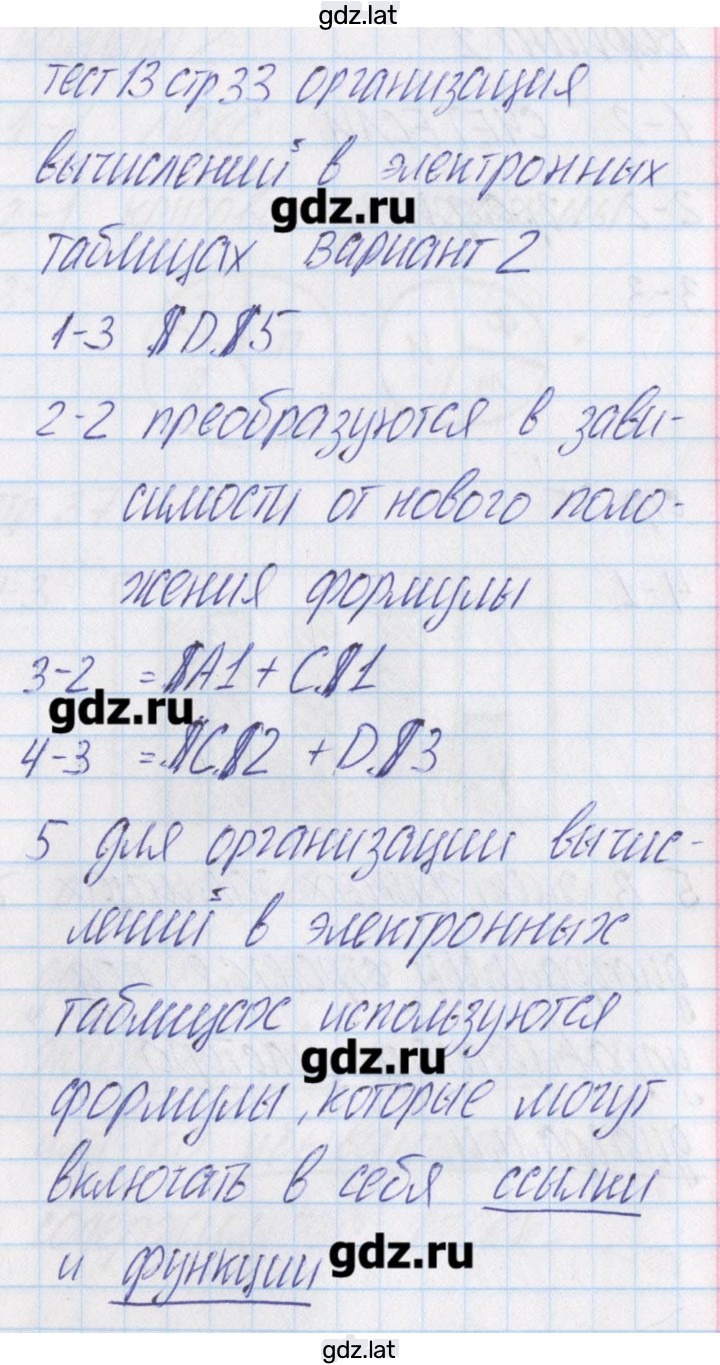 gdz.lat
тест 13 стр 33 организация
вычислений в электронных
gdz.ru
таблицах вариант 2
1-3 $D$5
2-2 преобразуются в зави-
симости от нового поло-
жения формулы
3-2 =$A1+C$1
gdz.ru
4-3 =$C$2 +D$3
5 для организации вычис-
лений в электронных
таблицах используются
gdz.ru
формулы, которые могут
включать в себя ссылки
и функции
gdz.ru
gdz.lat